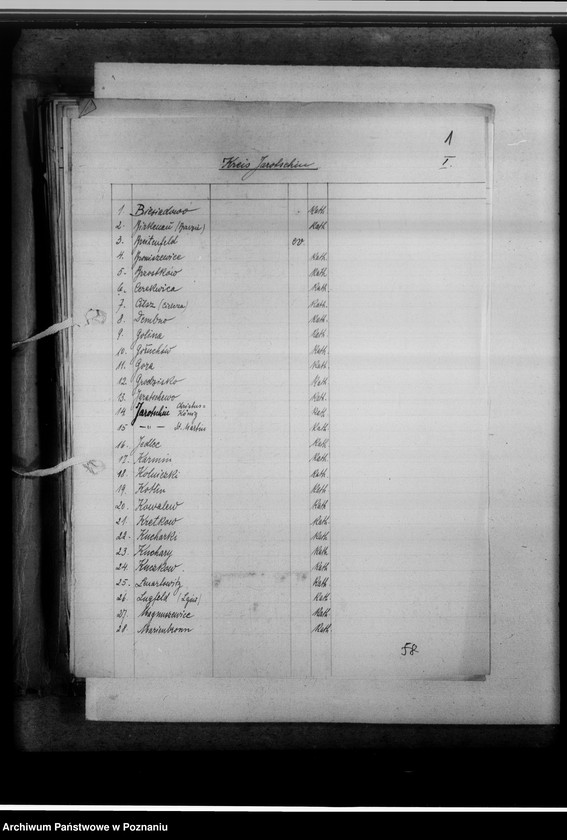 1
Kreis Jarotschin
I.
1. Biesiadowo Kath
2. Birkenau Kath
3. Breitenfeld ev.
4. Broniszewice Kath
5. Brzostków Kath
6. Cerekwica Kath
7. Cilcz Kath
8. Dembno Kath
9. Golina Kath
10. Goluchów Kath
11. Gora Kath
12. Grodzisko Kath
13. Jaratschewo Kath
14. Jarotschin Christus-König Kath
15 -"- St. Martin Kath
16. Jedlec Kath
17. Karmin Kath
18. Kolniczki Kath
19. Kotlin Kath
20. Kowalew Kath
21. Kretkow Kath
22. Kucharki Kath
23. Kuchary Kath
24. Kuczkow Kath
25. Lmartowitz Kath
26. Lugfeld Kath
27. Magnuszewice Kath
28. Marienbronn Kath
58
Archiwum Państwowe w Poznaniu